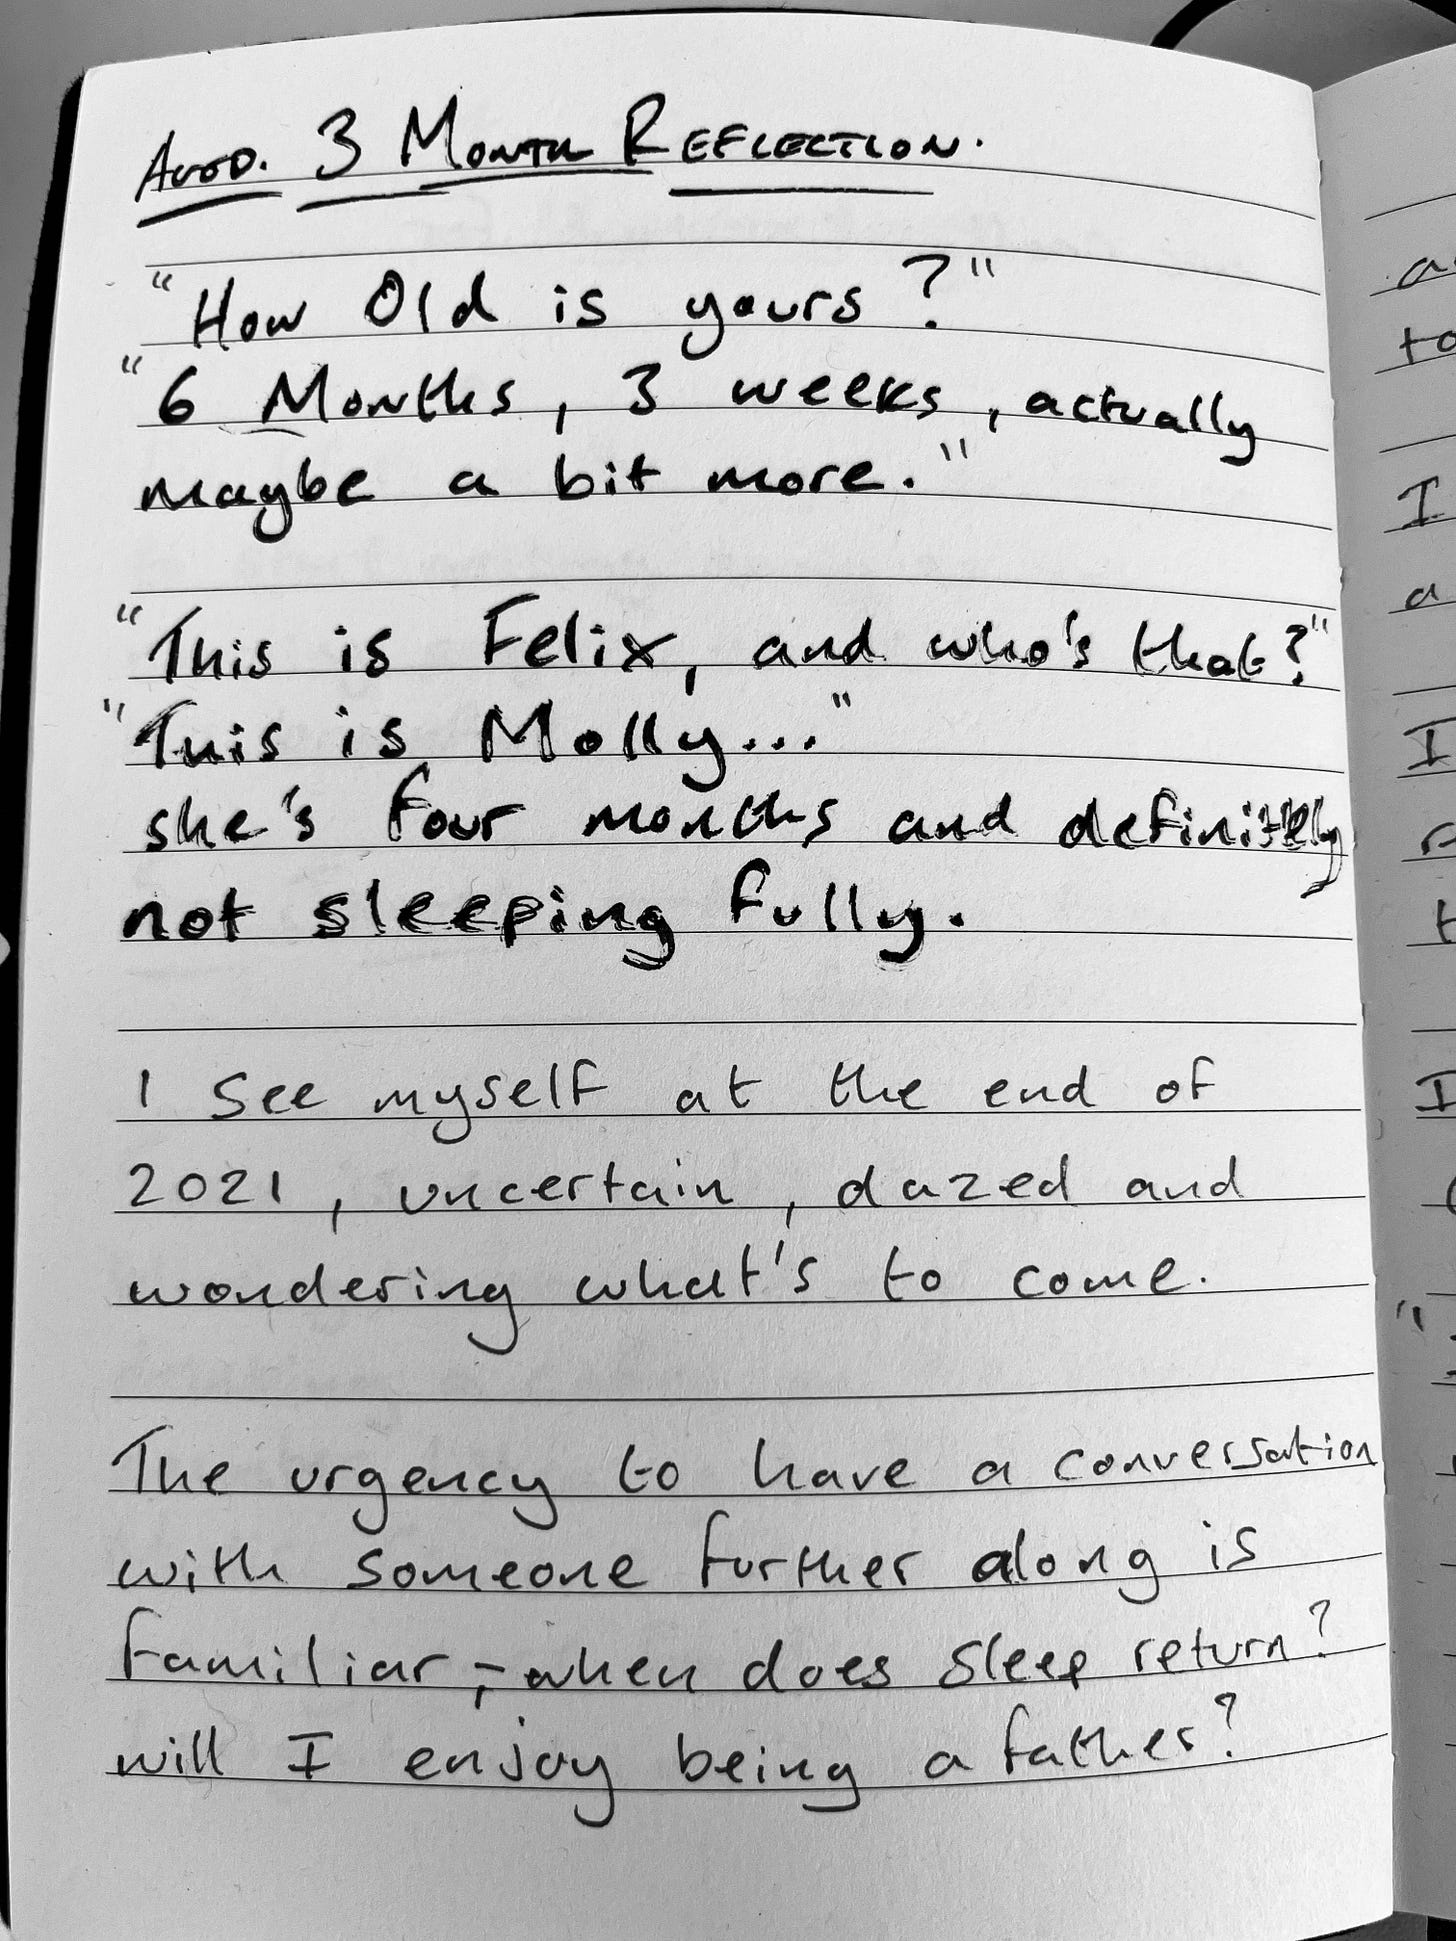 3 MONTH REFLECTION.
"How Old is yours?"
"6 Months, 3 weeks, actually
maybe a bit more."
"This is Felix, and who's that?"
"This is Molly..."
she's four months and definitely
not sleeping fully.
I see myself at the end of
2021, uncertain, dazed and
wondering what's to come.
The urgency to have a conversation
with someone further along is
familiar, - when does sleep return?
will I enjoy being a father?
a
I
a
I
t
I